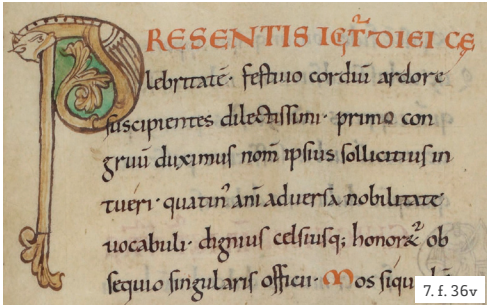 PRESENTIS IGIT᷑ DIEI CĘ
lebritatē· festiuo cordiū ardore
suscipientes dilectissimi· primo con
gruū duximus nom̄ ipsius sollicitius in
tueri· quatin᾽ ani aduersā nobilitate
uocabuli· dignius celsiusq; honor&᷑ ob
sequio singularis officii· Mos siquidē
7. f. 36v